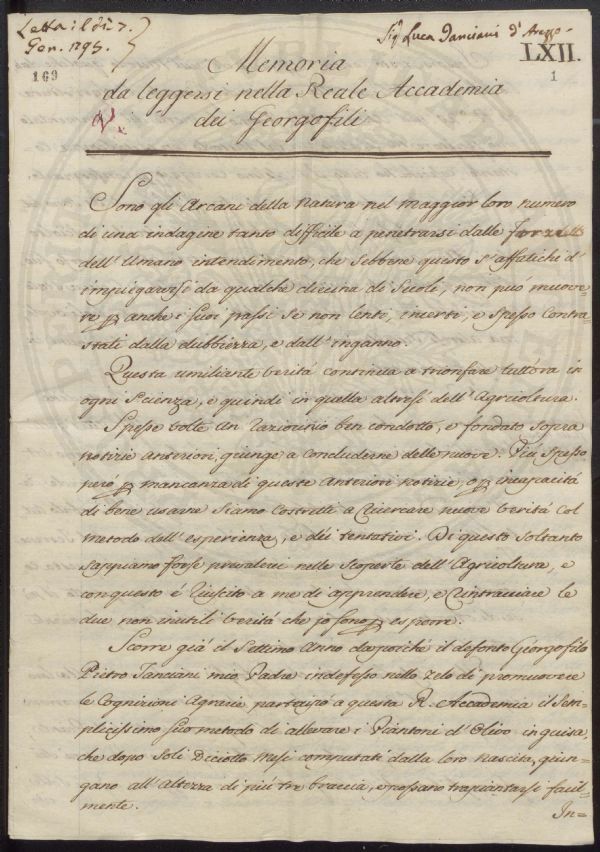 Letta il dì 7.
Gen. 1795.
Sig. Luca Tanciani d'Arezzo.
LXII.
169
1
Memoria
da leggersi nella Reale Accademia
dei Georgofili
Sono gli Arcani della natura nel maggior loro numero
di una indagine tanto difficile a penetrarsi dalle forze
dell'Umano intendimento, che sebbene questo s'affatichi d'
impiegarvisi da qualche diecina di Secole, non può muove=
re per anche i suoi passi se non lenti, incerti, e spesso contra=
stati dalla dubbiezza, e dall'inganno.
Questa umiliante verità continua a trionfare tuttora in
ogni Scienza, e quindi in quella altresì dell'Agricoltura.
Spesse volte un raziocinio ben condotto, e fondato sopra
notizie anteriori, giunge a concluderne delle nuove. Più spesso
però per mancanza di queste anteriori notizie, o per incapacità
di bene usarne siamo costretti a ricercare nuove verità col
metodo dell'esperienza, e dei tentativi. Di questo soltanto
sappiamo forse prevalerci nelle scoperte dell'Agricoltura, e
con questo è riuscito a me di apprendere, e rintracciare le
due non inutili verità che io sono per esporre.
Scorre già il Settimo Anno daposichè il defonto Giorgofilo
Pietro Tanciani mio Padre indefesso nello zelo di promuovere
le Cognizioni Agrarie partecipò a questa R. Accademia il Sem=
plicissimo suo metodo di allevare i Piantoni d'Olivo in guisa,
che dopo soli Diciotto Mesi computati dalla loro nascita, giun=
gano all'Altezza di più tre braccia, e possano trapiantarsi facil=
mente.
In=